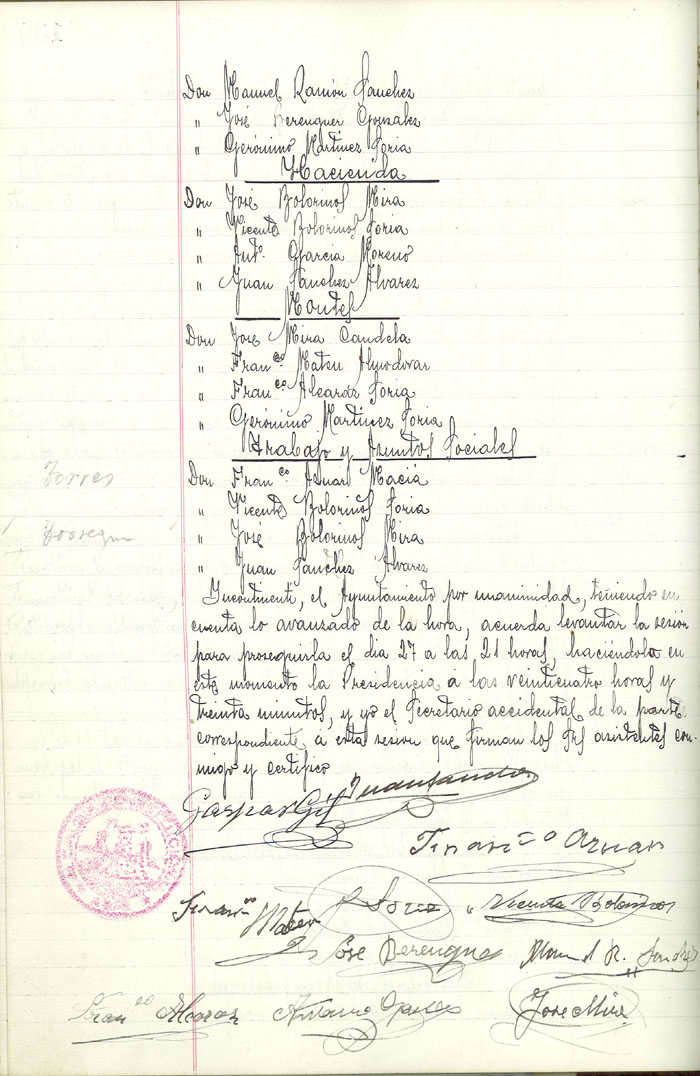 Don Manuel Ramón Sanchez
" José Berenguer Gonzalez
" Gerónimo Martinez Soria
Hacienda
Don José Bolorinos Mira
" Vicente Bolorinos Soria
" Antº. Garcia Moreno
" Juan Sanchez Alvarez
Montes
Don José Mira Candela
" Franco. Mateu Almodovar
" Franco. Alcaraz Soria
" Gerónimo Martinez Soria
Trabajo y Asuntos Sociales
Don Franco. Asnar Maciá
" Vicente Bolorinos Soria
" José Bolorinos Mira
" Juan Sanchez Alvarez
Incontinenti, el Ayuntamiento por unanimidad, teniendo en
cuenta lo avanzado de la hora, acuerda levantar la sesión
para proseguirla el dia 27 a las 21 horas, haciéndola en
este momento la Presidencia a las veinticuatro horas y
treinta minutos, y yo el Secretario accidental de la parte
correspondiente á esta sesion que firman los Srs asistentes con-
migo y certifico
Gaspar Gil Juan Sanchez
Franco Aznar
Torres
Franco Mateu J. Soria Vicente Bolorinos
José Berenguer Manuel R. Sanchez
Franco Alcaraz Antonio Garcia José Mira